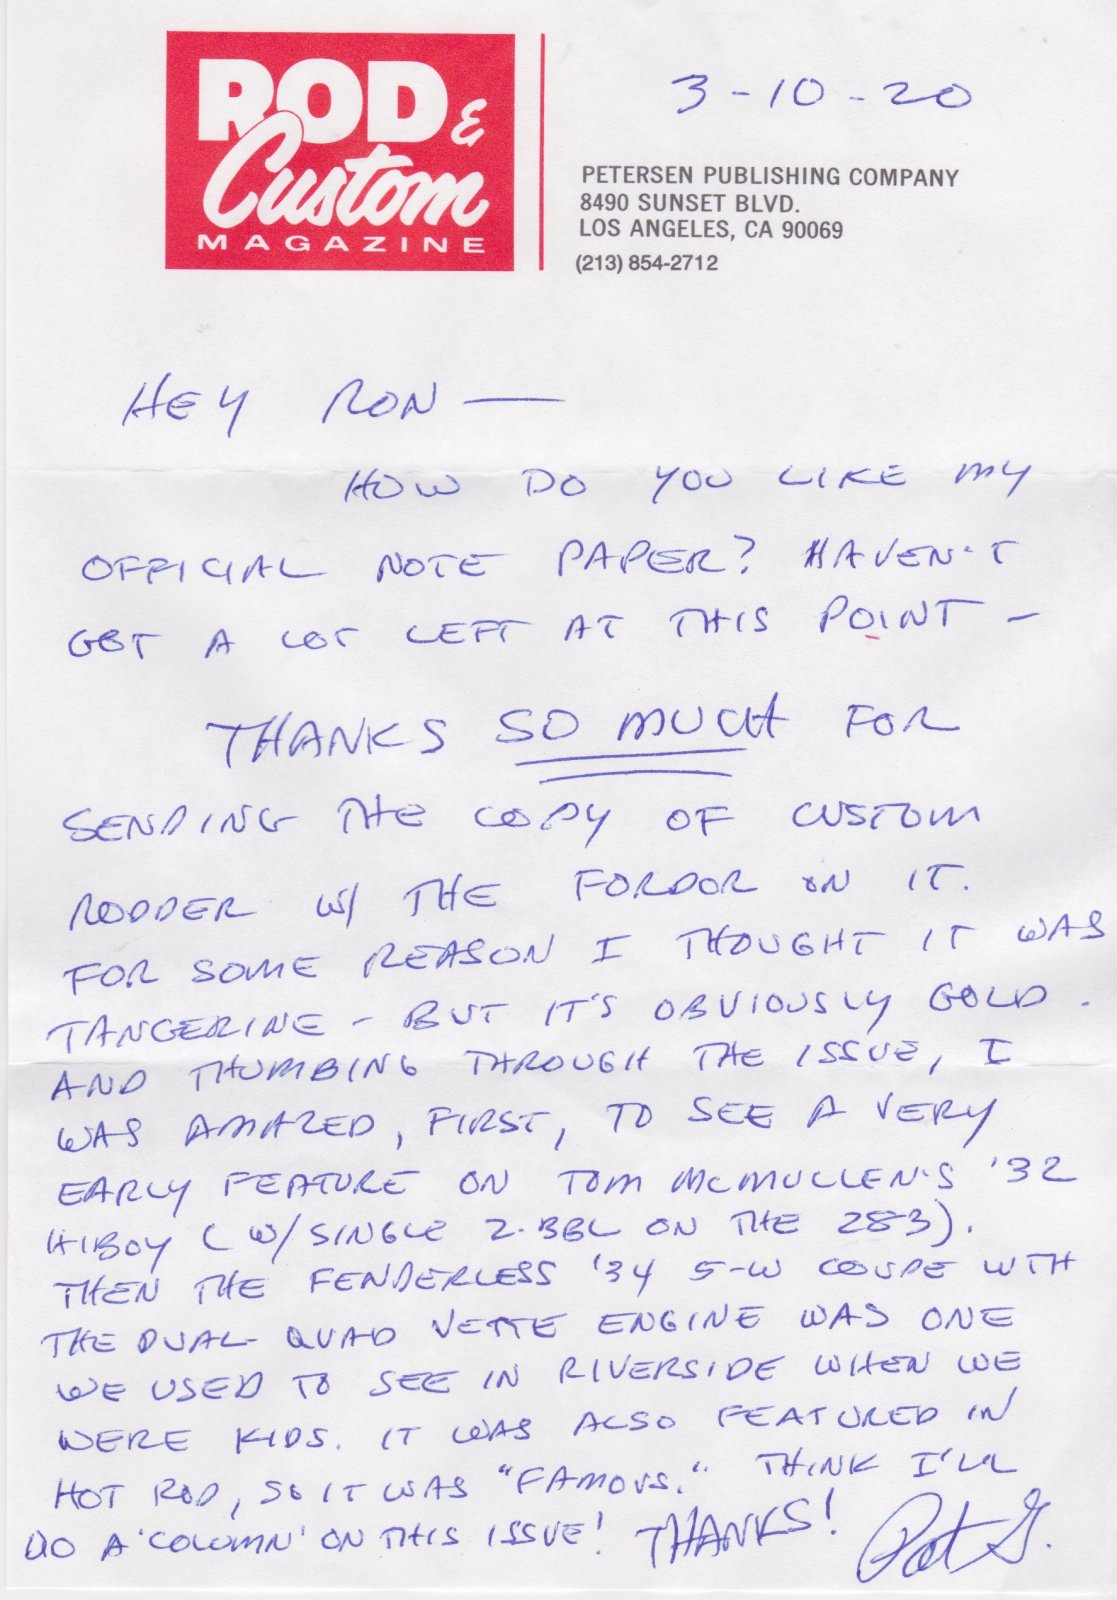 ROD &
Custom
MAGAZINE
3-10-20
PETERSEN PUBLISHING COMPANY
8490 SUNSET BLVD.
LOS ANGELES, CA 90069
(213) 854-2712
HEY RON —
HOW DO YOU LIKE MY
OFFICIAL NOTE PAPER? HAVEN'T
GOT A LOT LEFT AT THIS POINT —
THANKS SO MUCH FOR
SENDING THE COPY OF CUSTOM
RODDER W/ THE FORDOR ON IT.
FOR SOME REASON I THOUGHT IT WAS
TANGERINE - BUT IT'S OBVIOUSLY GOLD.
AND THUMBING THROUGH THE ISSUE, I
WAS AMAZED, FIRST, TO SEE A VERY
EARLY FEATURE ON TOM MCMULLEN'S '32
HIBOY (W/SINGLE 2-BBL ON THE 283).
THEN THE FENDERLESS '34 5-W COUPE WITH
THE DUAL-QUAD VETTE ENGINE WAS ONE
WE USED TO SEE IN RIVERSIDE WHEN WE
WERE KIDS. IT WAS ALSO FEATURED IN
HOT ROD, SO IT WAS "FAMOUS." THINK I'LL
DO A 'COLUMN' ON THIS ISSUE! THANKS!
Pat G.